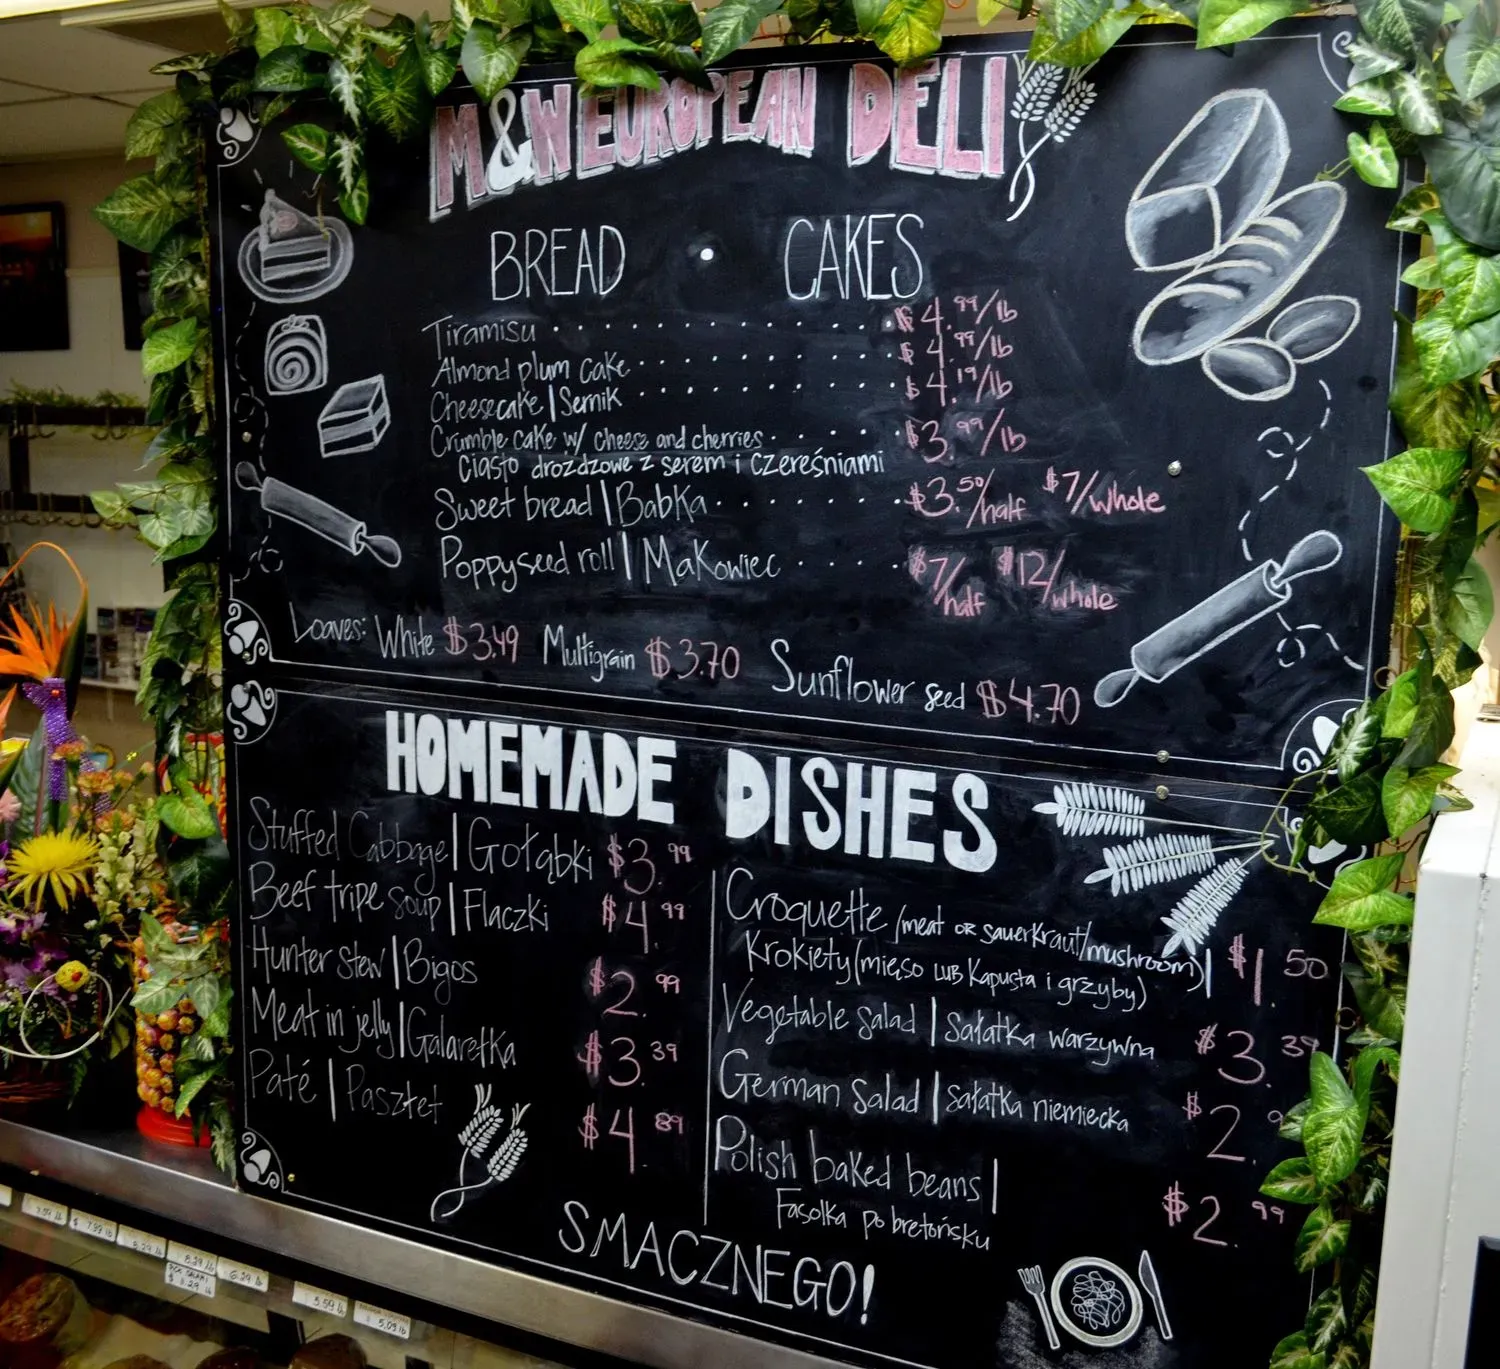 M&W EUROPEAN DELI
BREAD • CAKES
Tiramisu $4.99/lb
Almond plum cake $4.99/lb
Cheesecake | Sernik $4.19/lb
Crumble cake w/ cheese and cherries $3.99/lb
Ciasto drozdzowe z serem i czereśniami
Sweet bread | Babka $3.50/half $7/whole
Poppyseed roll | Makowiec $7/half $12/whole
Loaves: White $3.49 Multigrain $3.70 Sunflower seed $4.70
HOMEMADE DISHES
Stuffed Cabbage | Gołąbki $3.99
Beef tripe soup | Flaczki $4.99
Hunter stew | Bigos $2.99
Meat in jelly | Galaretka $3.39
Paté | Pasztet $4.89
Croquette (meat or sauerkraut/mushroom) | $1.50
Krokiety (mięso lub kapusta i grzyby)
Vegetable salad | Sałatka warzywna $3.39
German salad | Sałatka niemiecka $2.
Polish baked beans | $2.99
Fasolka po bretońsku
SMACZNEGO!
8.29 lb
6.29 lb
5.59 lb
$ 5.09 lb